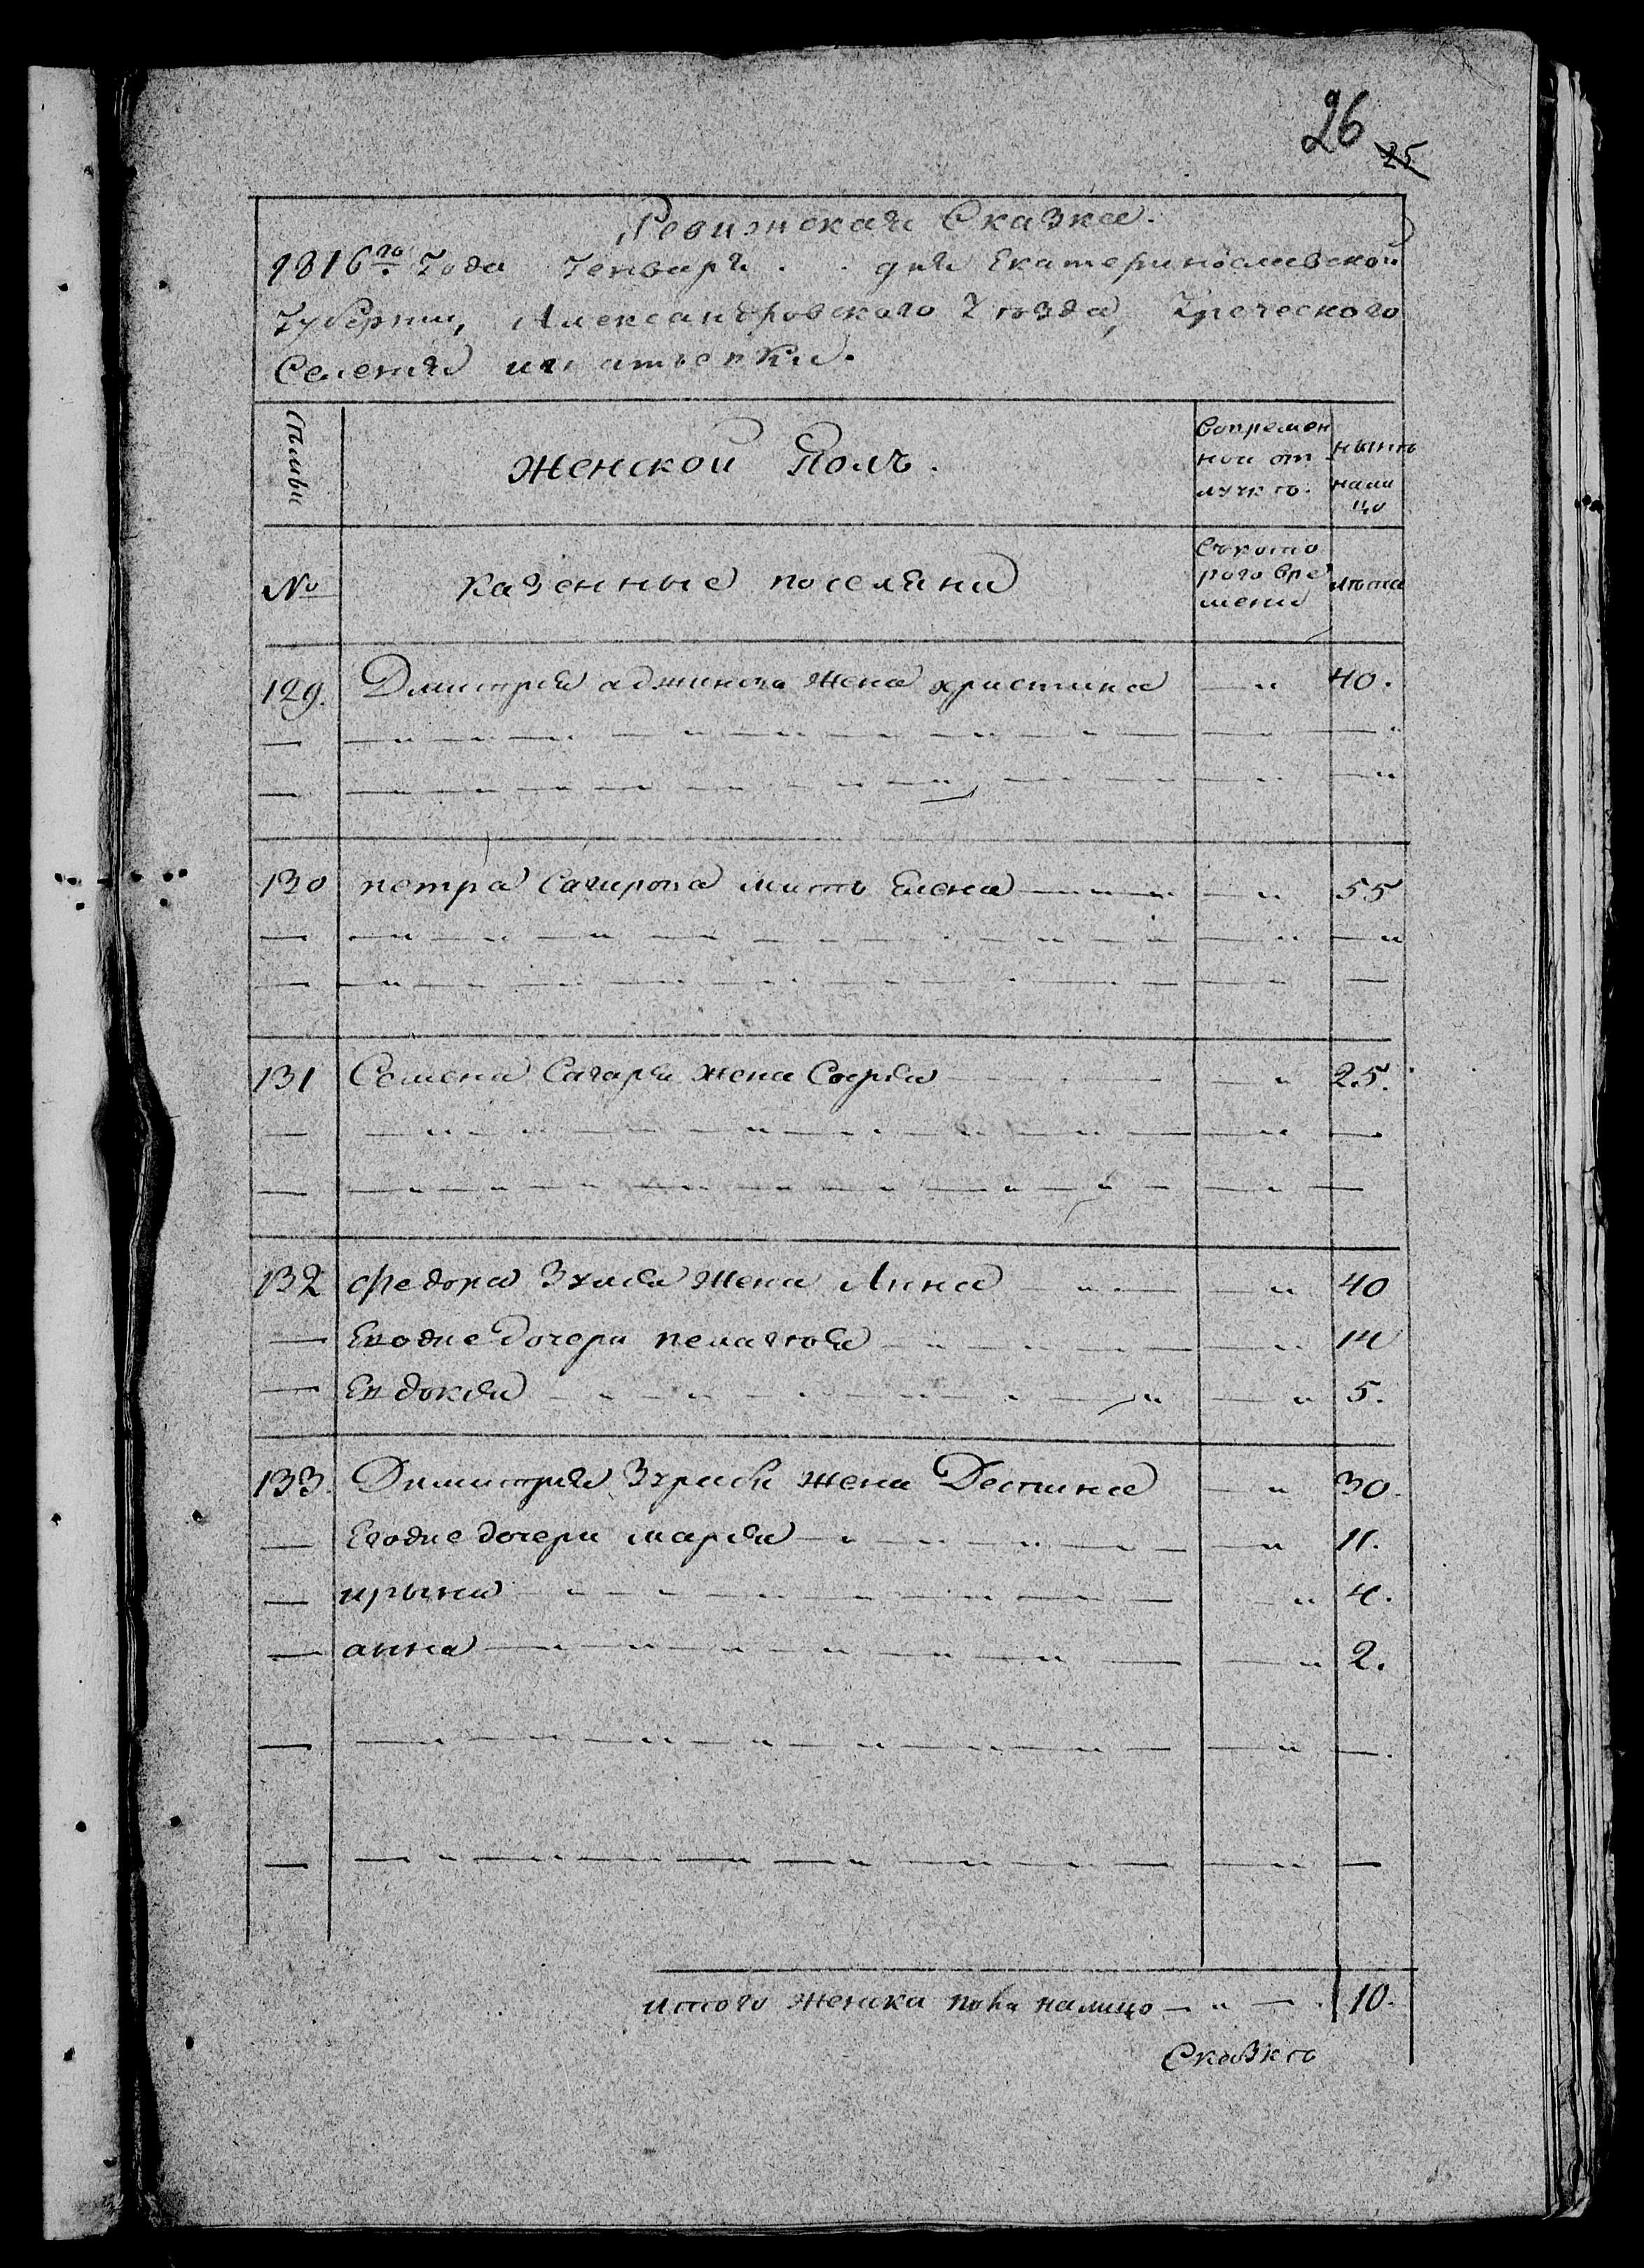 26 25
Ревижская Сказка.
1816го Года Генваря . . дня Екатеринославской
Губернии, Александровского Уезда, Греческого
Селения
Семьи
женской Полъ.
Вовремен
ной от
лучкѣ.
нынѣ
нали
цо
№
казенные поселяни
Съкото
рого вре
мени
лѣта
129. Димитрия аджинова жена христина — " 40.
130 петра Сагирова мать Елена — " 55
131 Семена Сагиря жена София — " 25.
132 федора жена Анна — " 40
Еводне дочери пелагѣя 14
Евдокия — " 5.
133. Димитрия жена Деспина — " 30.
Егодне дочери мария — " 11.
ирына — " 4.
анна — " 2.
итого женска пола налицо — " — 10.
Сказкѣ